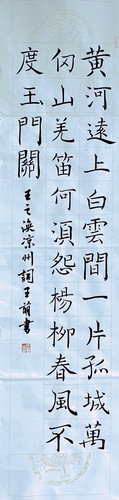 黃河遠上白雲間一片孤城萬
仞山羌笛何須怨楊柳春風不
度玉門關
王之渙涼州詞子萌書